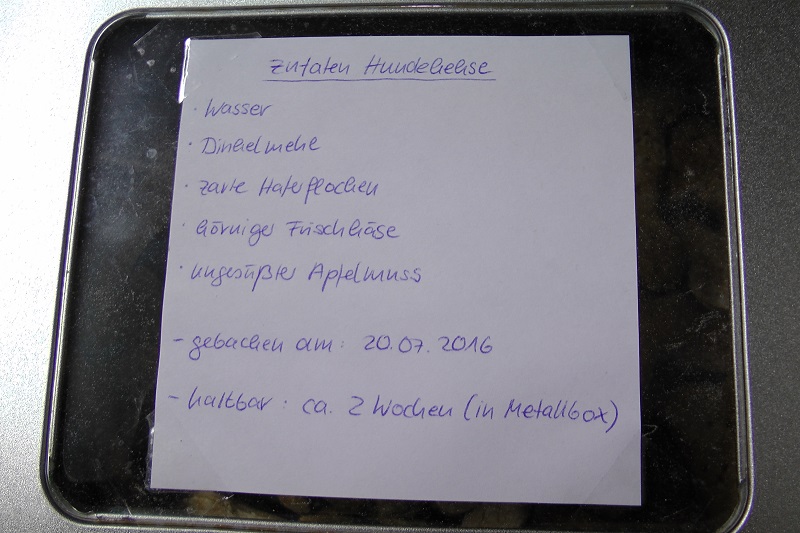 Zutaten Hundekekse
· Wasser
· Dinkelmehl
· zarte Haferflocken
· körniger Frischkäse
· ungesüßter Apfelmuss
- gebacken am: 20.07.2016
- haltbar: ca. 2 Wochen (in Metallbox)